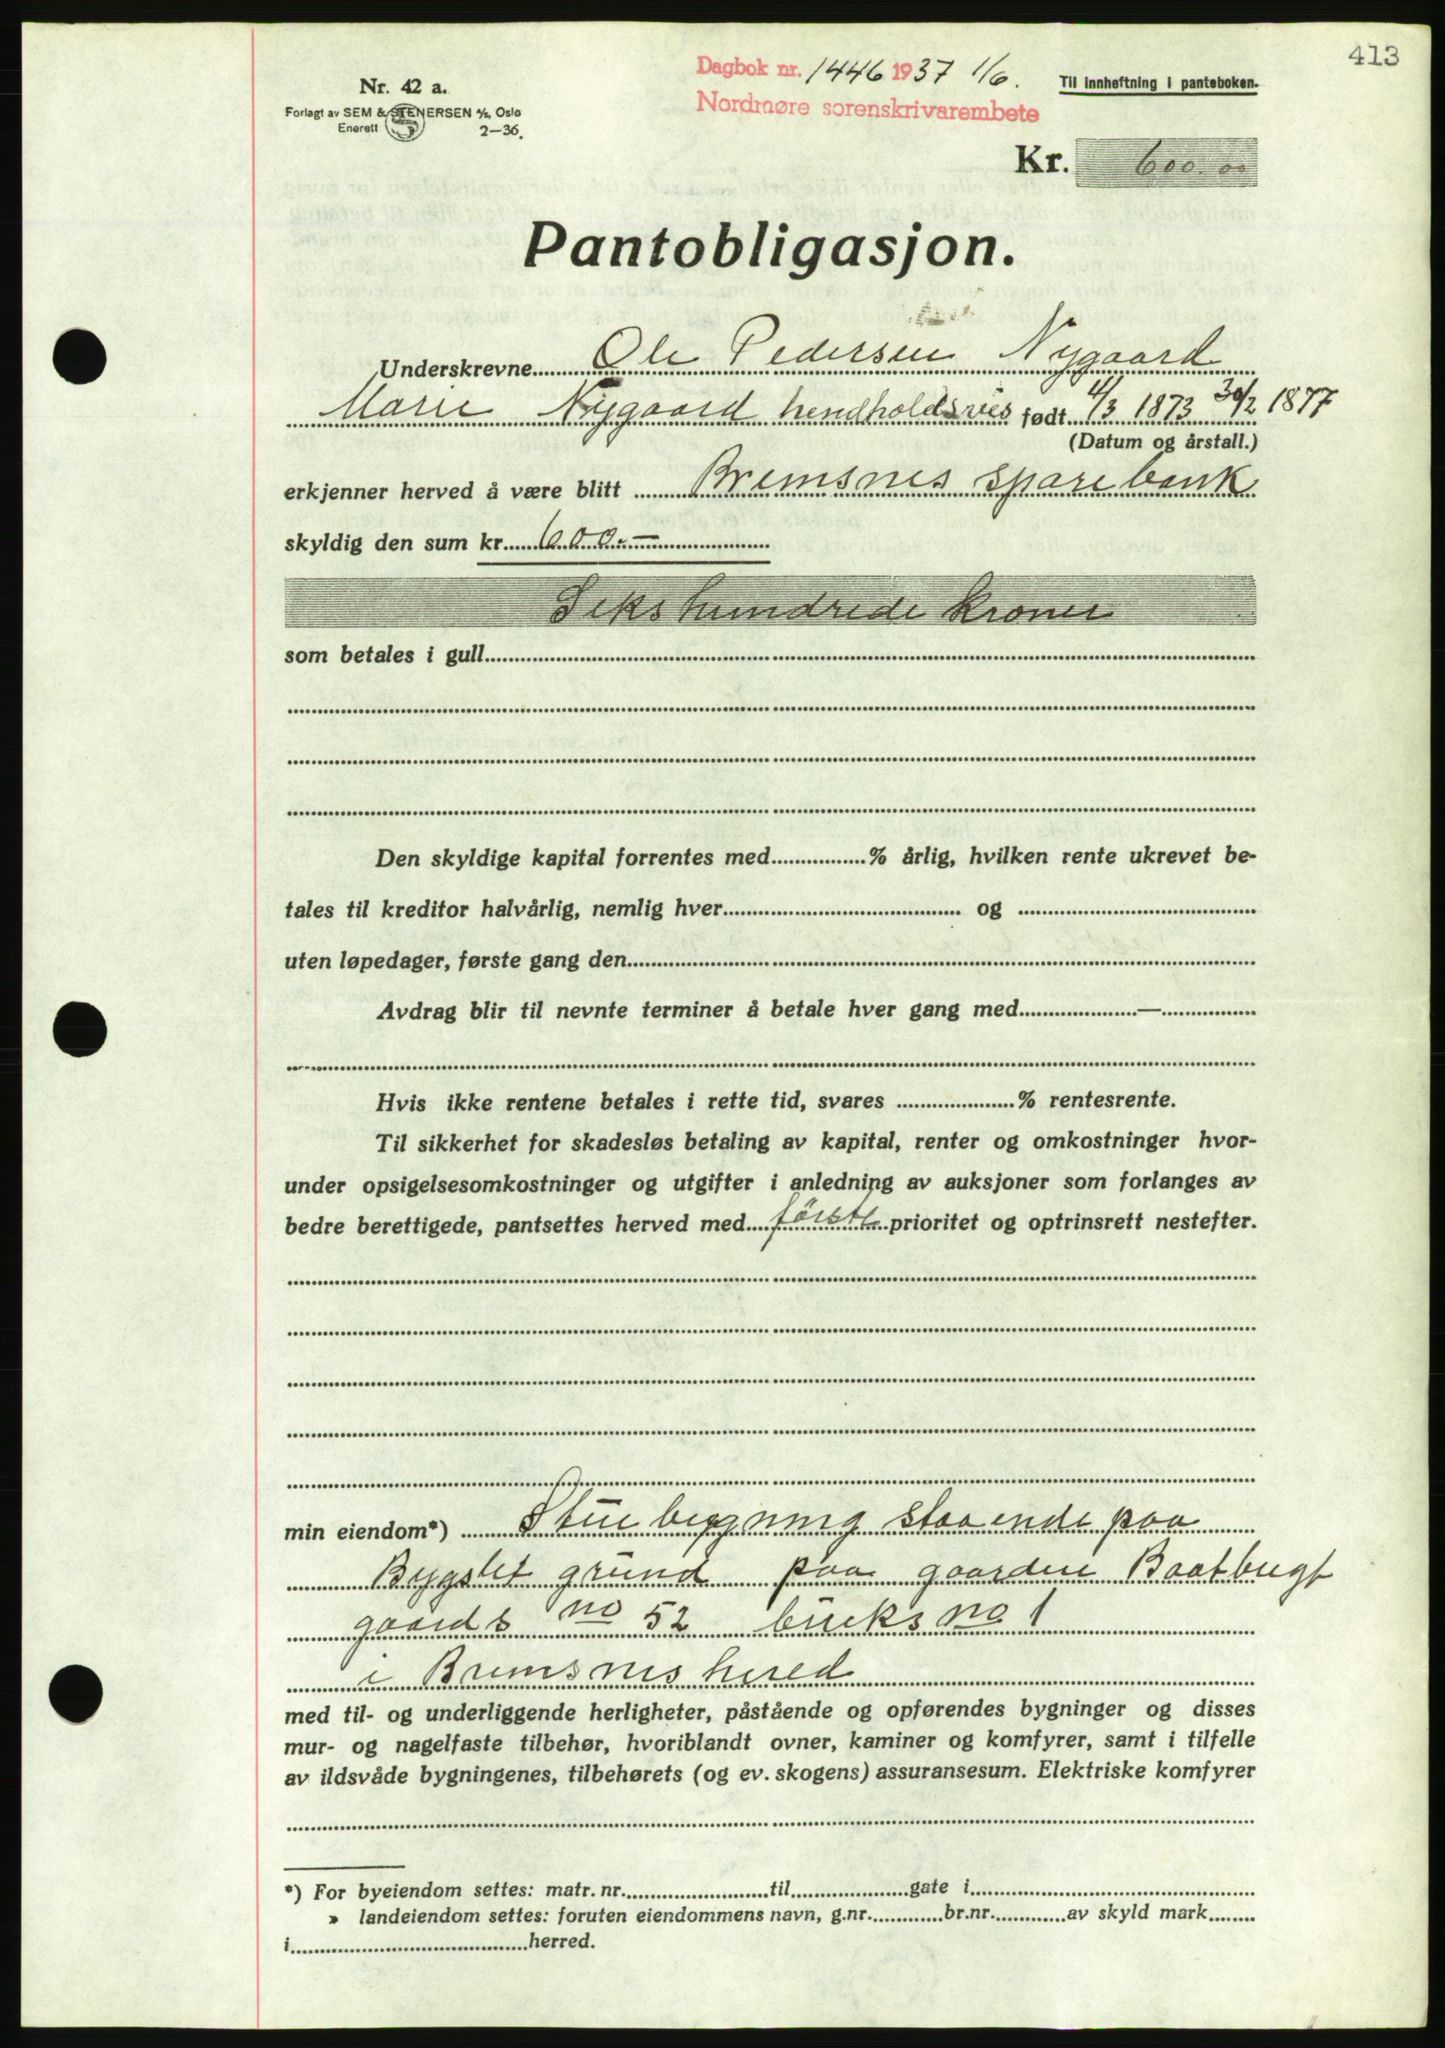 413
Dagbok nr. 1446 1937 1/6.
Nordmøre sorenskrivarembete
Nr. 42 a.
Forlagt av SEM & STENERSEN A/S, Oslo
Enerett
2—36.
Til innheftning i panteboken.
Kr. 600.00
Pantobligasjon.
Underskrevne Ole Pedersen Nygaard
Marie Nygaard hendholdsvies født 4/3 1873 30/2 1877
(Datum og årstall.)
erkjenner herved å være blitt Bremsnes sparebank
skyldig den sum kr. 600.—
Sekshundrede kroner
som betales i gull
Den skyldige kapital forrentes med % årlig, hvilken rente ukrevet be-
tales til kreditor halvårlig, nemlig hver og
uten løpedager, første gang den
Avdrag blir til nevnte terminer å betale hver gang med —
Hvis ikke rentene betales i rette tid, svares % rentesrente.
Til sikkerhet for skadesløs betaling av kapital, renter og omkostninger hvor-
under opsigelsesomkostninger og utgifter i anledning av auksjoner som forlanges av
bedre berettigede, pantsettes herved med første prioritet og optrinsrett nestefter.
min eiendom*) Stue bygning staaende paa
Bygslet grund paa gaarden Baatbugt
gaards no 52 bruks no 1
i Bremsnes hered
med til- og underliggende herligheter, påstående og opførendes bygninger og disses
mur- og nagelfaste tilbehør, hvoriblandt ovner, kaminer og komfyrer, samt i tilfelle
av ildsvåde bygningenes, tilbehørets (og ev. skogens) assuransesum. Elektriske komfyrer
*) For byeiendom settes: matr. nr. til gate i
» landeiendom settes: foruten eiendommens navn, g.nr. br.nr. av skyld mark
i herred.